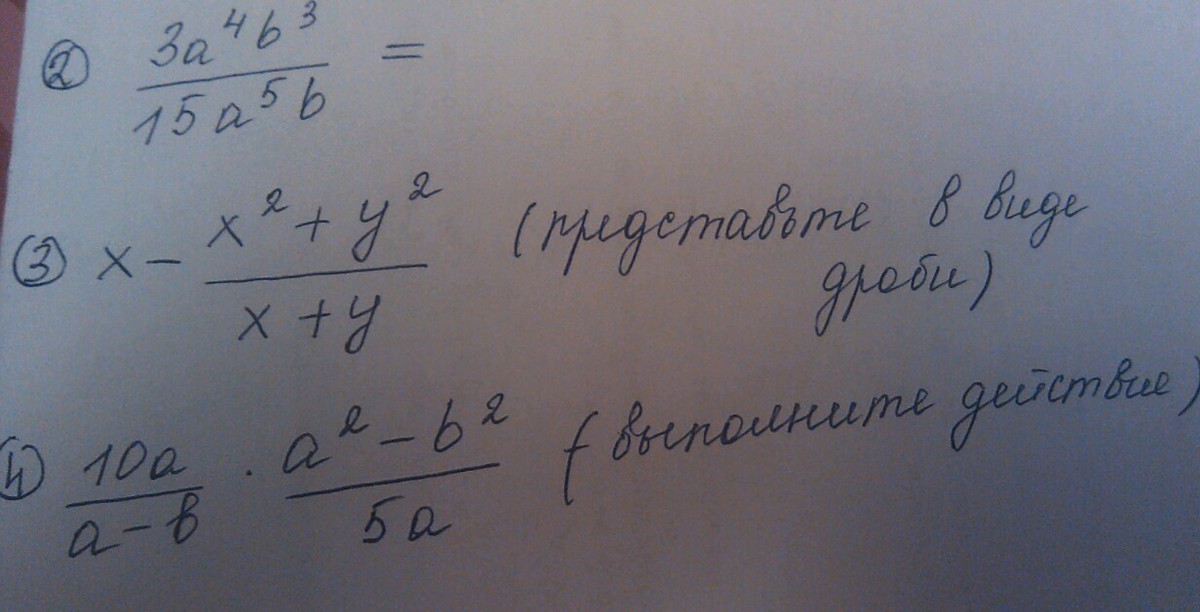 ② 3a⁴b³ / 15a⁵b =
③ x - x² + y² / x + y (представьте в виде
дроби)
④ 10a / a - в · a² - b² / 5a (выполните действие)